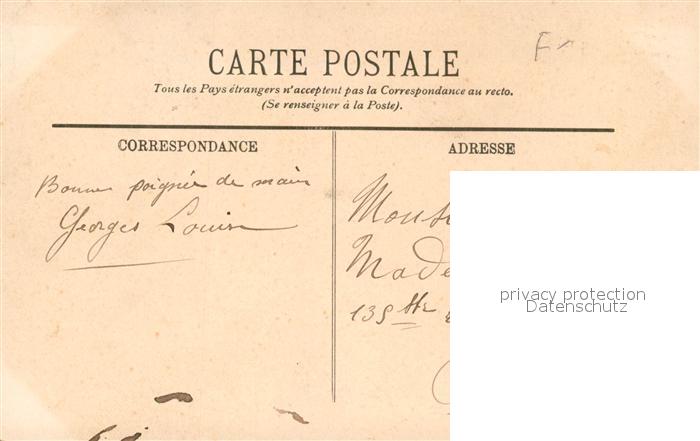 CARTE POSTALE
Tous les Pays étrangers n'acceptent pas la Correspondance au recto.
(Se renseigner à la Poste).
CORRESPONDANCE
ADRESSE
Bonne poignée de main
Georges Louise
privacy protection
Datenschutz